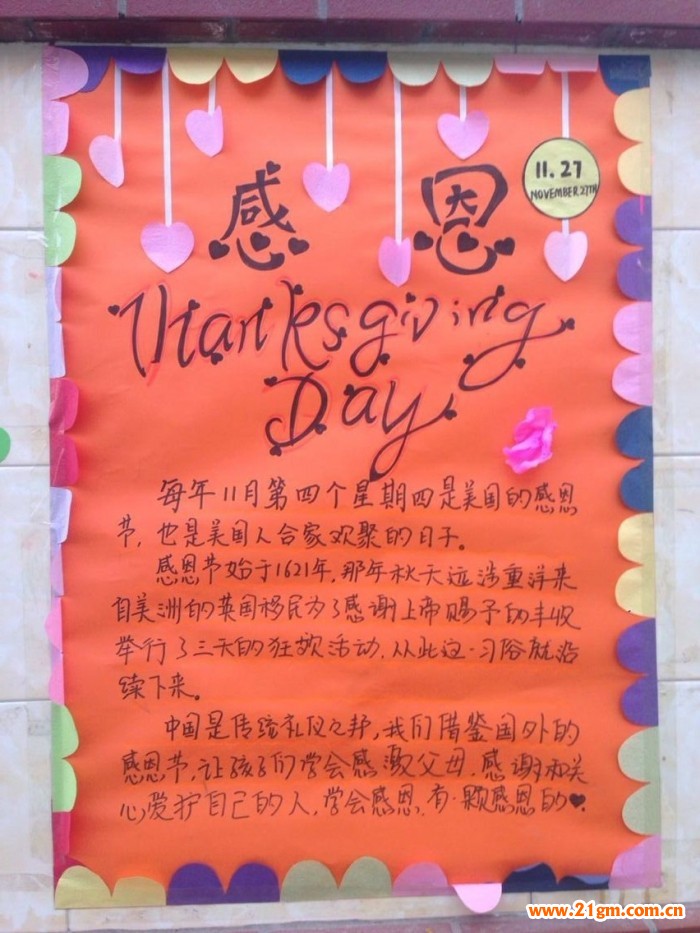 11.27
NOVEMBER 27TH
感恩
Thanksgiving
Day
每年11月第四个星期四是美国的感恩
节，也是美国人合家欢聚的日子。
感恩节始于1621年，那年秋天远涉重洋来
自美洲的英国移民为了感谢上帝赐予的丰收
举行了三天的狂欢活动，从此这一习俗就沿
续下来。
中国是传统礼仪之邦，我们借鉴国外的
感恩节，让孩子们学会感激父母，感谢和关
心爱护自己的人，学会感恩，有一颗感恩的
www.21gm.com.cn